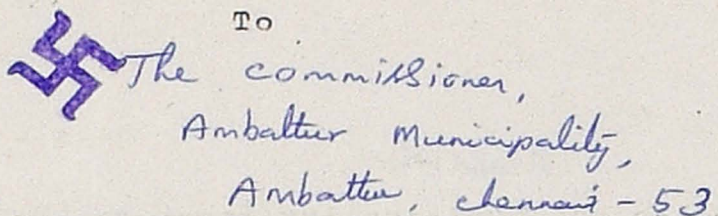 To
The commissioner,
Ambattur Municipality,
Ambattur, chennai - 53